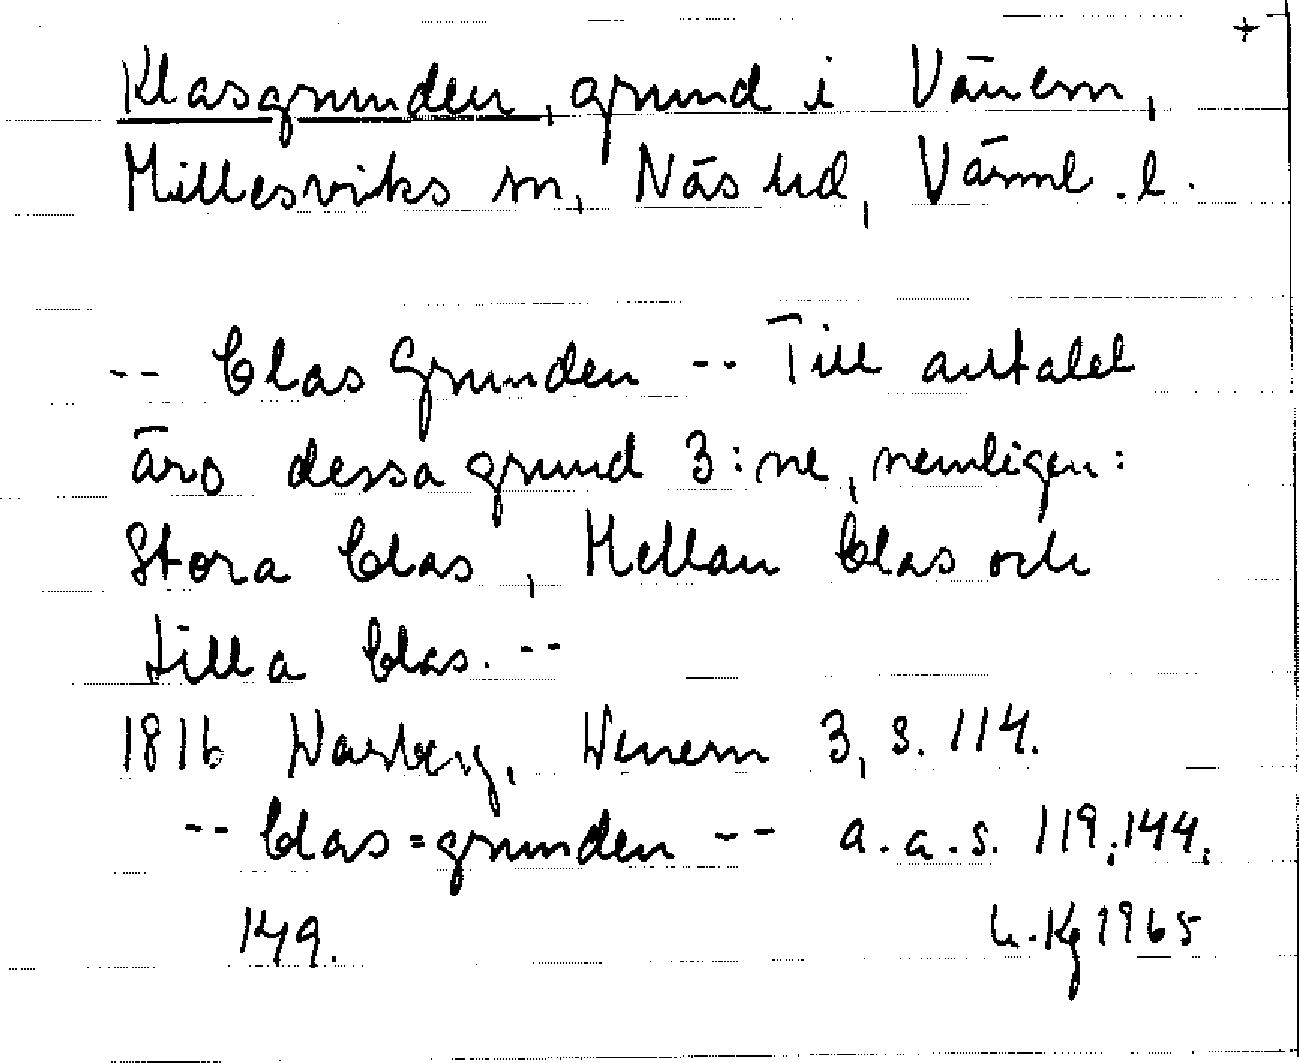 +
Klasgrunden, grund i Vänern,
Millesviks sn, Näs hd, Värml. l.
-- Clas Grunden -- Till antalet
äro dessa grund 3:ne, nemligen:
Stora Clas, Mellan Clas och
Lilla Clas. --
1816 Warberg, Wenern 3, s. 114.
-- Clas=grunden -- a.a.s. 119, 144,
149.
Kg 1965